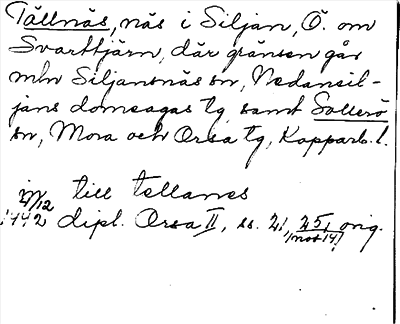 Tällnäs, näs i Siljan, Ö. om
Svarttjärn, där gränsen går
mln Siljansnäs sn, Nedansil-
jans domsagas tg samt Sollerö
sn, Mora och Orsa tg, Kopparb. l.
till tellanes
27/12
1442 dipl. Orsa II, ss. 21, 25, orig.
not 14!